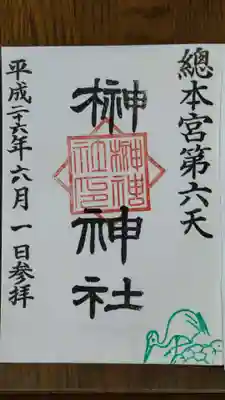 總本宮第六天
榊神社
榊神社印
平成二十六年六月一日参拝